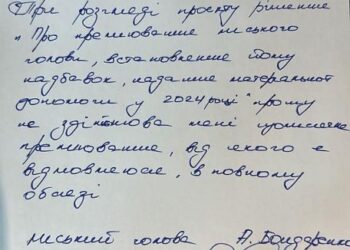 При розгляді проєкту рішення
"Про преміювання міського
голови, встановлення йому
надбавок, надання матеріальної
допомоги у 2024 році" прошу
не здійснювати мені щомісячне
преміювання, від якого я
відмовляюся, в повному
обсязі
Міський голова А. Бондаренко